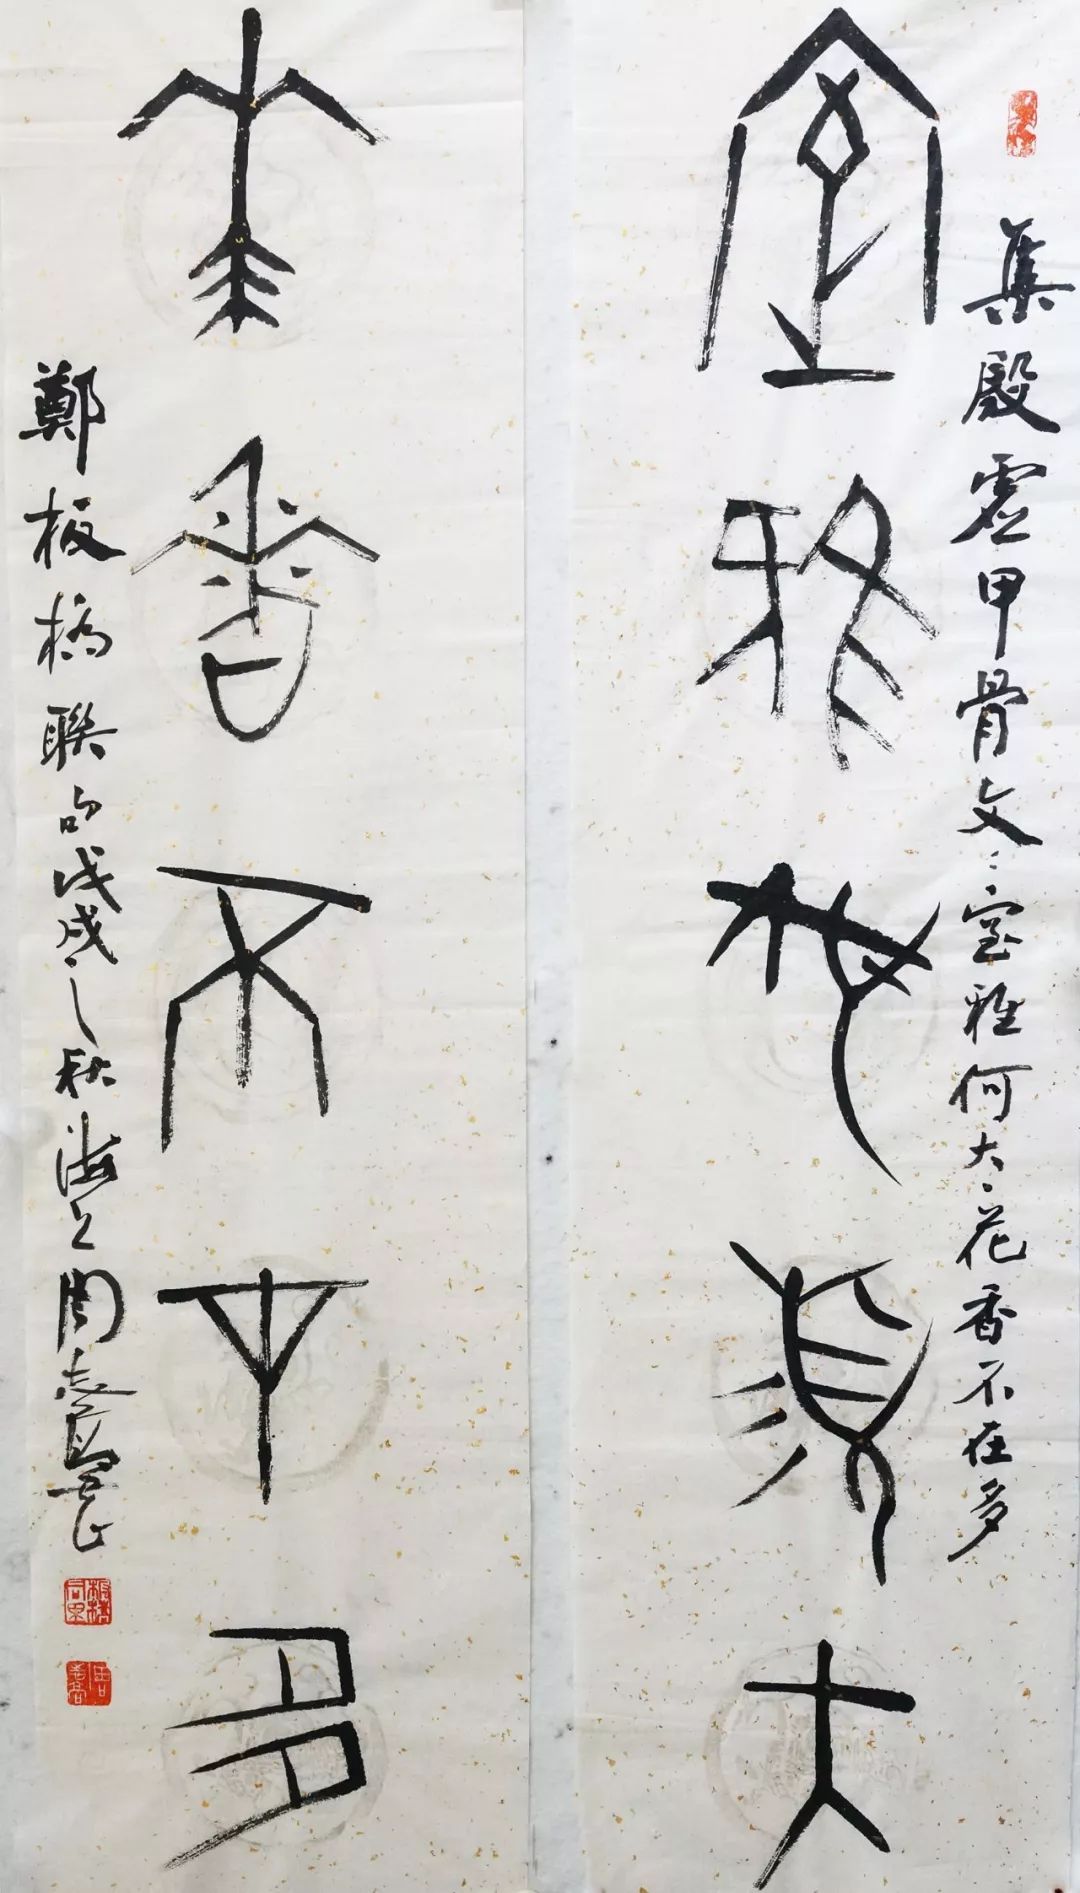 集殷虚甲骨文室雅何大花香不在多
室雅何須大
花香不在多
鄭板橋聯句戊戌之秋海上周志高